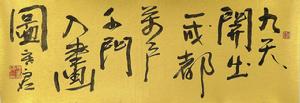 九天
開出
一成都
萬戶
千門
入畫
圖